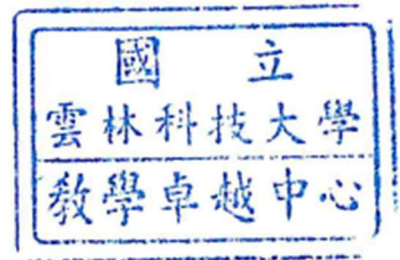 國立
雲林科技大學
教學卓越中心